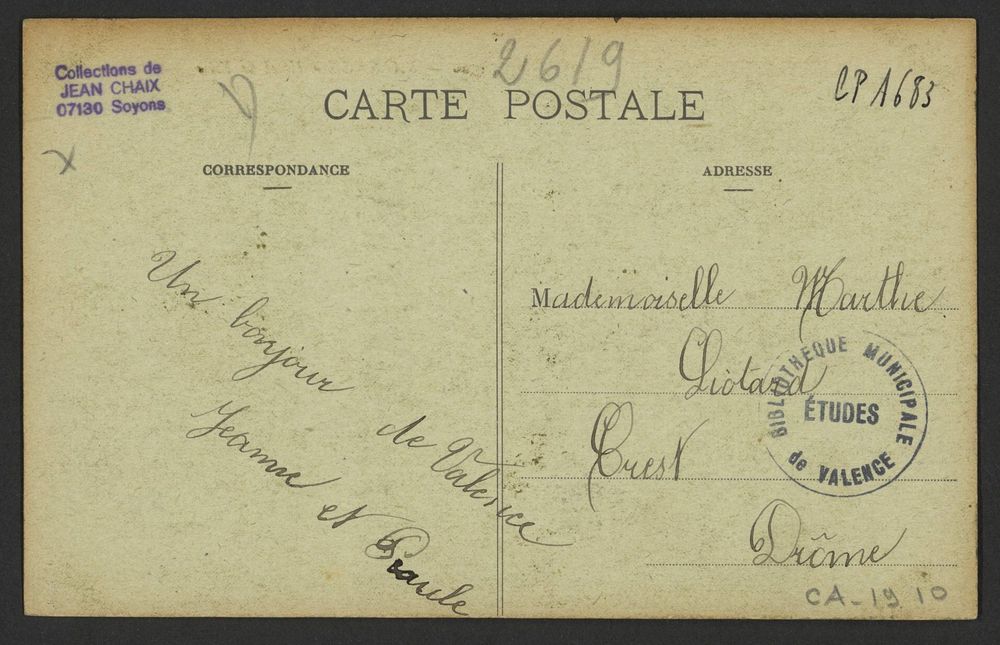 Collections de
JEAN CHAIX
07130 Soyons
2619
CP 1683
CARTE POSTALE
CORRESPONDANCE
Un bonjour de Valence
Jeanne et
ADRESSE
Mademoiselle Marthe
Liotard
Crest
Drôme
BIBLIOTHÈQUE MUNICIPALE
ÉTUDES
de VALENCE
CA-19 10